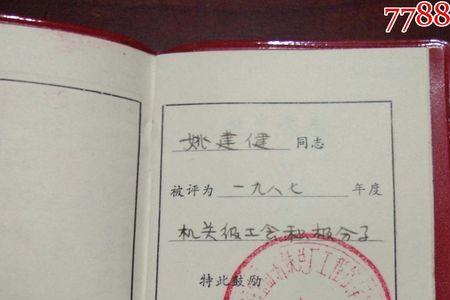 7788
姚建健 同志
被评为 一九八七 年度
机关级工会积极分子
特此鼓励